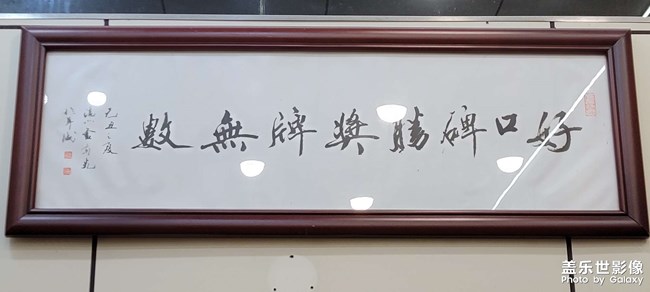 好口碑勝獎牌無數
己丑之夏
盖乐世影像
Photo by Galaxy